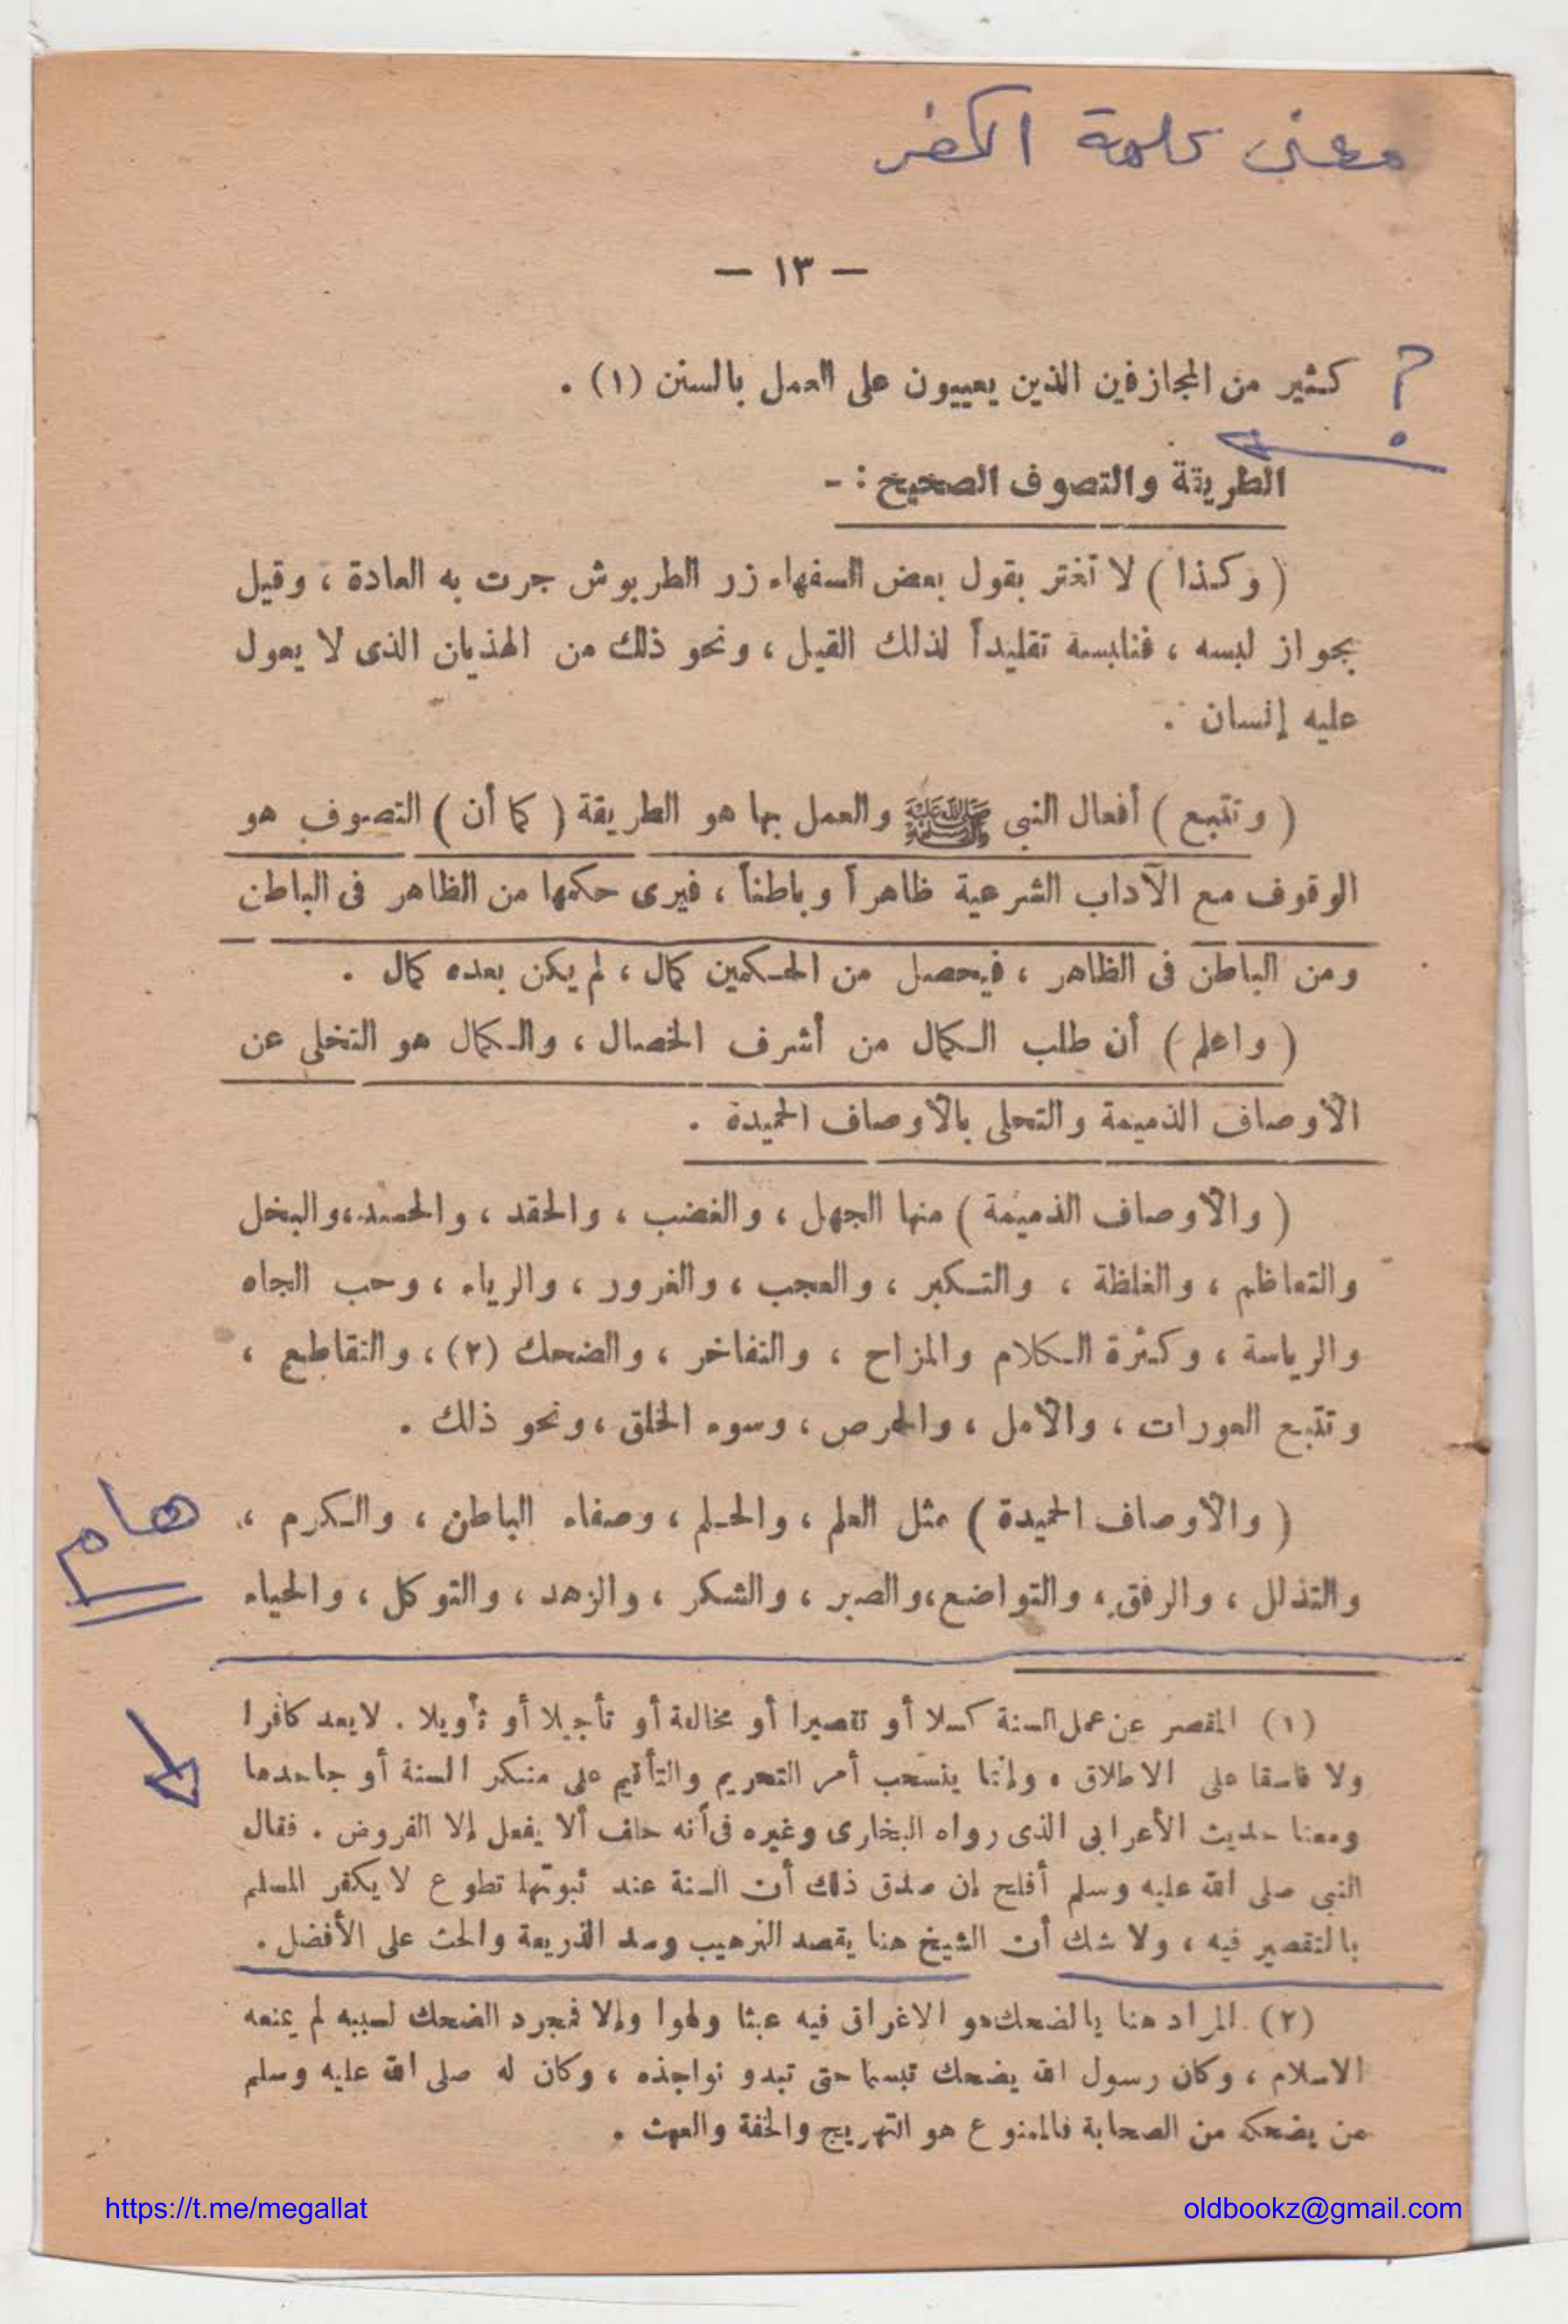 معنى كلمة الكفر
— ١٣ —
؟ كثير من المجازفين الذين يعيبون على العمل بالسنن (١) .
الطريقة والتصوف الصحيح : -
( وكذا ) لا تغتر بقول بعض السفهاء زر الطربوش جرت به العادة ، وقيل
بجواز لبسه ، فنلبسه تقليداً لذلك القيل ، ونحو ذلك من الهذيان الذى لا يعول
عليه إنسان .
( وتتبع ) أفعال النبى ﷺ والعمل بها هو الطريقة ( كما أن ) التصوف هو
الوقوف مع الآداب الشرعية ظاهراً وباطناً ، فيرى حكمها من الظاهر فى الباطن
ومن الباطن فى الظاهر ، فيحصل من الحكمين كمال ، لم يكن بعده كمال .
( واعلم ) أن طلب الكمال من أشرف الخصال ، والكمال هو التخلى عن
الأوصاف الذميمة والتحلى بالأوصاف الحميدة .
( والأوصاف الذميمة ) منها الجهل ، والغضب ، والحقد ، والحسد ، والبخل
والتعاظم ، والغلظة ، والتكبر ، والعجب ، والغرور ، والرياء ، وحب الجاه
والرياسة ، وكثرة الكلام والمزاح ، والتفاخر ، والضحك (٢) ، والتقاطع ،
وتتبع العورات ، والأمل ، والحرص ، وسوء الخلق ، ونحو ذلك .
( والأوصاف الحميدة ) مثل العلم ، والحلم ، وصفاء الباطن ، والكرم ،
هام
والتذلل ، والرفق ، والتواضع ، والصبر ، والشكر ، والزهد ، والتوكل ، والحياء
(١) المقصر عن عمل السنة كسلا أو تقصيرا أو مخالفة أو تأجيلا أو تأويلا . لا يعد كافرا
ولا فاسقا على الاطلاق . وإنما ينسحب أمر التحريم والتأثيم على منكر السنة أو جاحدها
ومعنا حديث الأعرابى الذى رواه البخارى وغيره فى أنه حلف ألا يفعل إلا الفروض . فقال
النبى صلى الله عليه وسلم أفلح إن صدق ذلك أن السنة عند ثبوتها تطوع لا يكفر المسلم
بالتقصير فيه ، ولا شك أن الشيخ هنا يقصد الترهيب وسد الذريعة والحث على الأفضل .
(٢) المراد هنا بالضحك هو الاغراق فيه عبثا ولهوا وإلا فمجرد الضحك لسببه لم يمنعه
الاسلام ، وكان رسول الله يضحك تبسما حتى تبدو نواجذه ، وكان له صلى الله عليه وسلم
من يضحكه من الصحابة فالممنوع هو التهريج والخفة والعبث .
https://t.me/megallat oldbookz@gmail.com